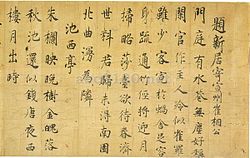 題新居寄宣州崔相公
門庭有水巷無塵好稱
閑官作主人冷似雀羅
雖少客寬於蝸舍足容
身疏通竹徑將迎月
掃略莎臺欲待春濟
世料君歸未得南園
北曲謾為隣
池西亭
朱欄映晚樹金魄落
秋池還似錢唐夜西
樓月出時